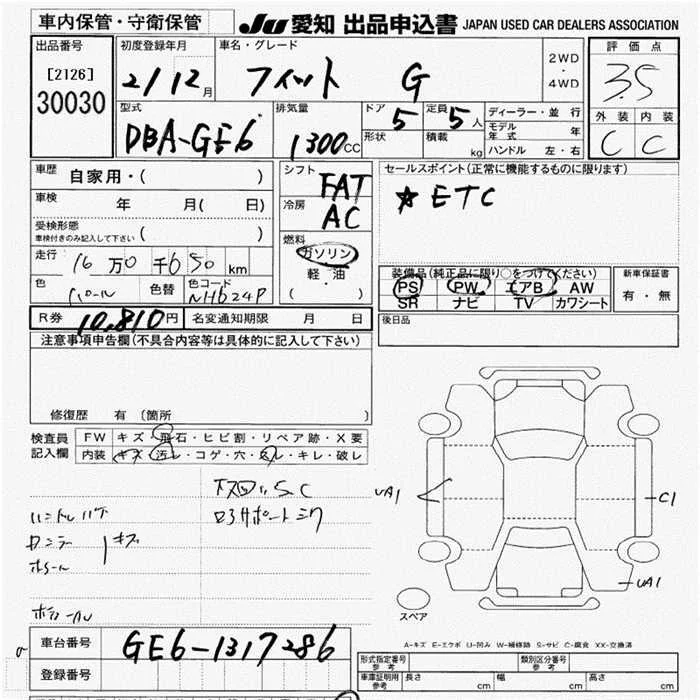 車内保管・守衛保管
JU 愛知 出品申込書 JAPAN USED CAR DEALERS ASSOCIATION
出品番号
[2126]
30030
初度登録年月
21/12月
車名・グレード
フィット G
2WD
・
4WD
評価点
3.5
外装 内装
C C
型式
DBA-GE6
排気量
1300CC
ドア
5
形状
定員
5人
積載
kg
ディーラー・並行
モデル年式 年
ハンドル 左・右
車歴
自家用・( )
車検
年 月( 日)
受検形態
車検付きのみ記入して下さい ( )
走行
16万0千650km
色
パール
色替
色コード
NH624P
シフト
FAT
冷房
AC
燃料
ガソリン
軽・油
( )
セールスポイント(正常に機能するものに限ります)
☆ETC
装備品(純正品に限り○をつけてください)
PS PW エアB AW
SR ナビ TV カワシート
新車保証書
有・無
R券 10,810円 名変通知期限 月 日
後日品
注意事項申告欄(不具合内容等は具体的に記入して下さい)
修復歴 有 (箇所 )
検査員
記入欄
FW キズ・飛石・ヒビ割・リペア跡・X要
内装 キズ・汚レ・コゲ・穴・スレ・キレ・破レ
下回りS.C
ロアサポートミク
ハンドル
キズ
UA1
C1
UA1
スペア
A-キズ E-エクボ U-凹み W-補修跡 S-サビ C-腐食 XX-交換済
車台番号
GE6-1317286
登録番号
形式指定番号
参考
類別区分番号
参考
車庫証明用
参考
長さ cm 幅 cm 高さ cm